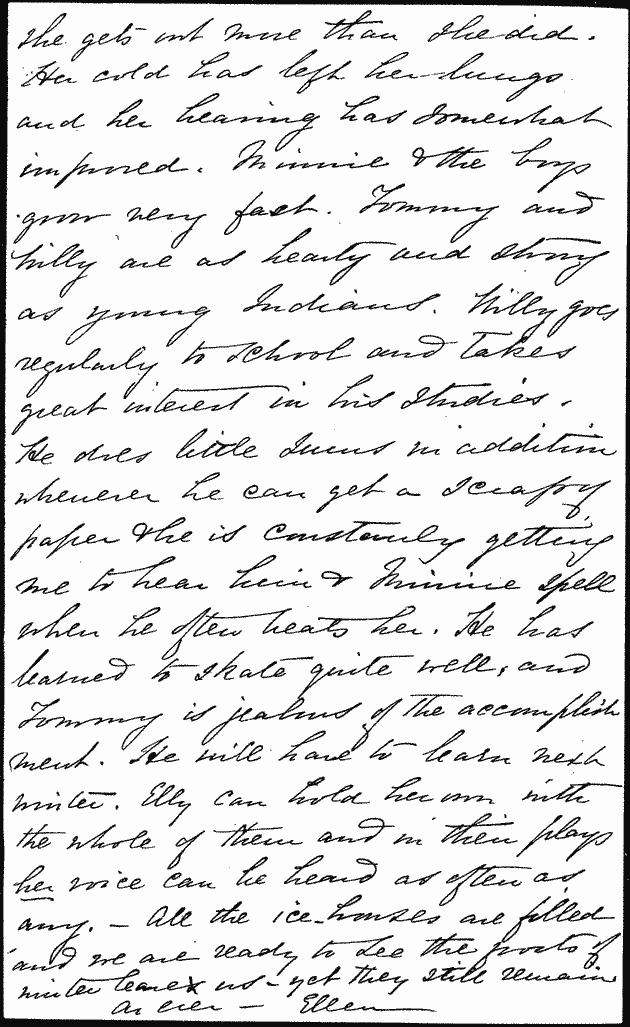 she gets out more than she did.
Her cold has left her lungs
and her hearing has somewhat
improved. Minnie & the boys
grow very fast. Tommy and
Willy are as hearty and strong
as young Indians. Willy goes
regularly to school and takes
great interest in his studies.
He does little sums in addition
whenever he can get a scrap of
paper & he is constantly getting
me to hear him & Minnie spell
when he often beats her. He has
learned to skate quite well, and
Tommy is jealous of the accomplish
ment. He will have to learn next
winter. Elly can hold her own with
the whole of them and in their plays
her voice can be heard as often as
any. – All the ice-houses are filled
and we are ready to see the frosts of
winter leave us – yet they still remain
As ever – Ellen